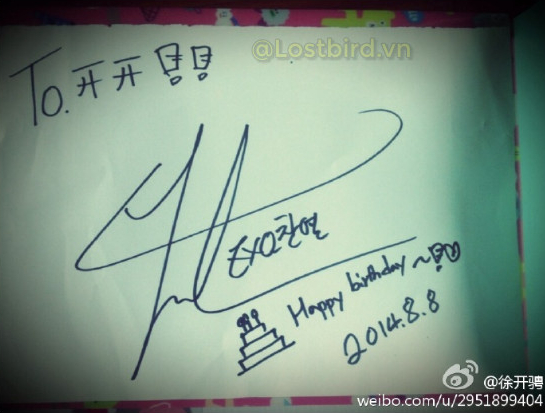 @Lostbird.vn
To. 开开!!
EXO찬열
Happy birthday~!!
2014.8.8
@徐开骋
weibo.com/u/2951899404